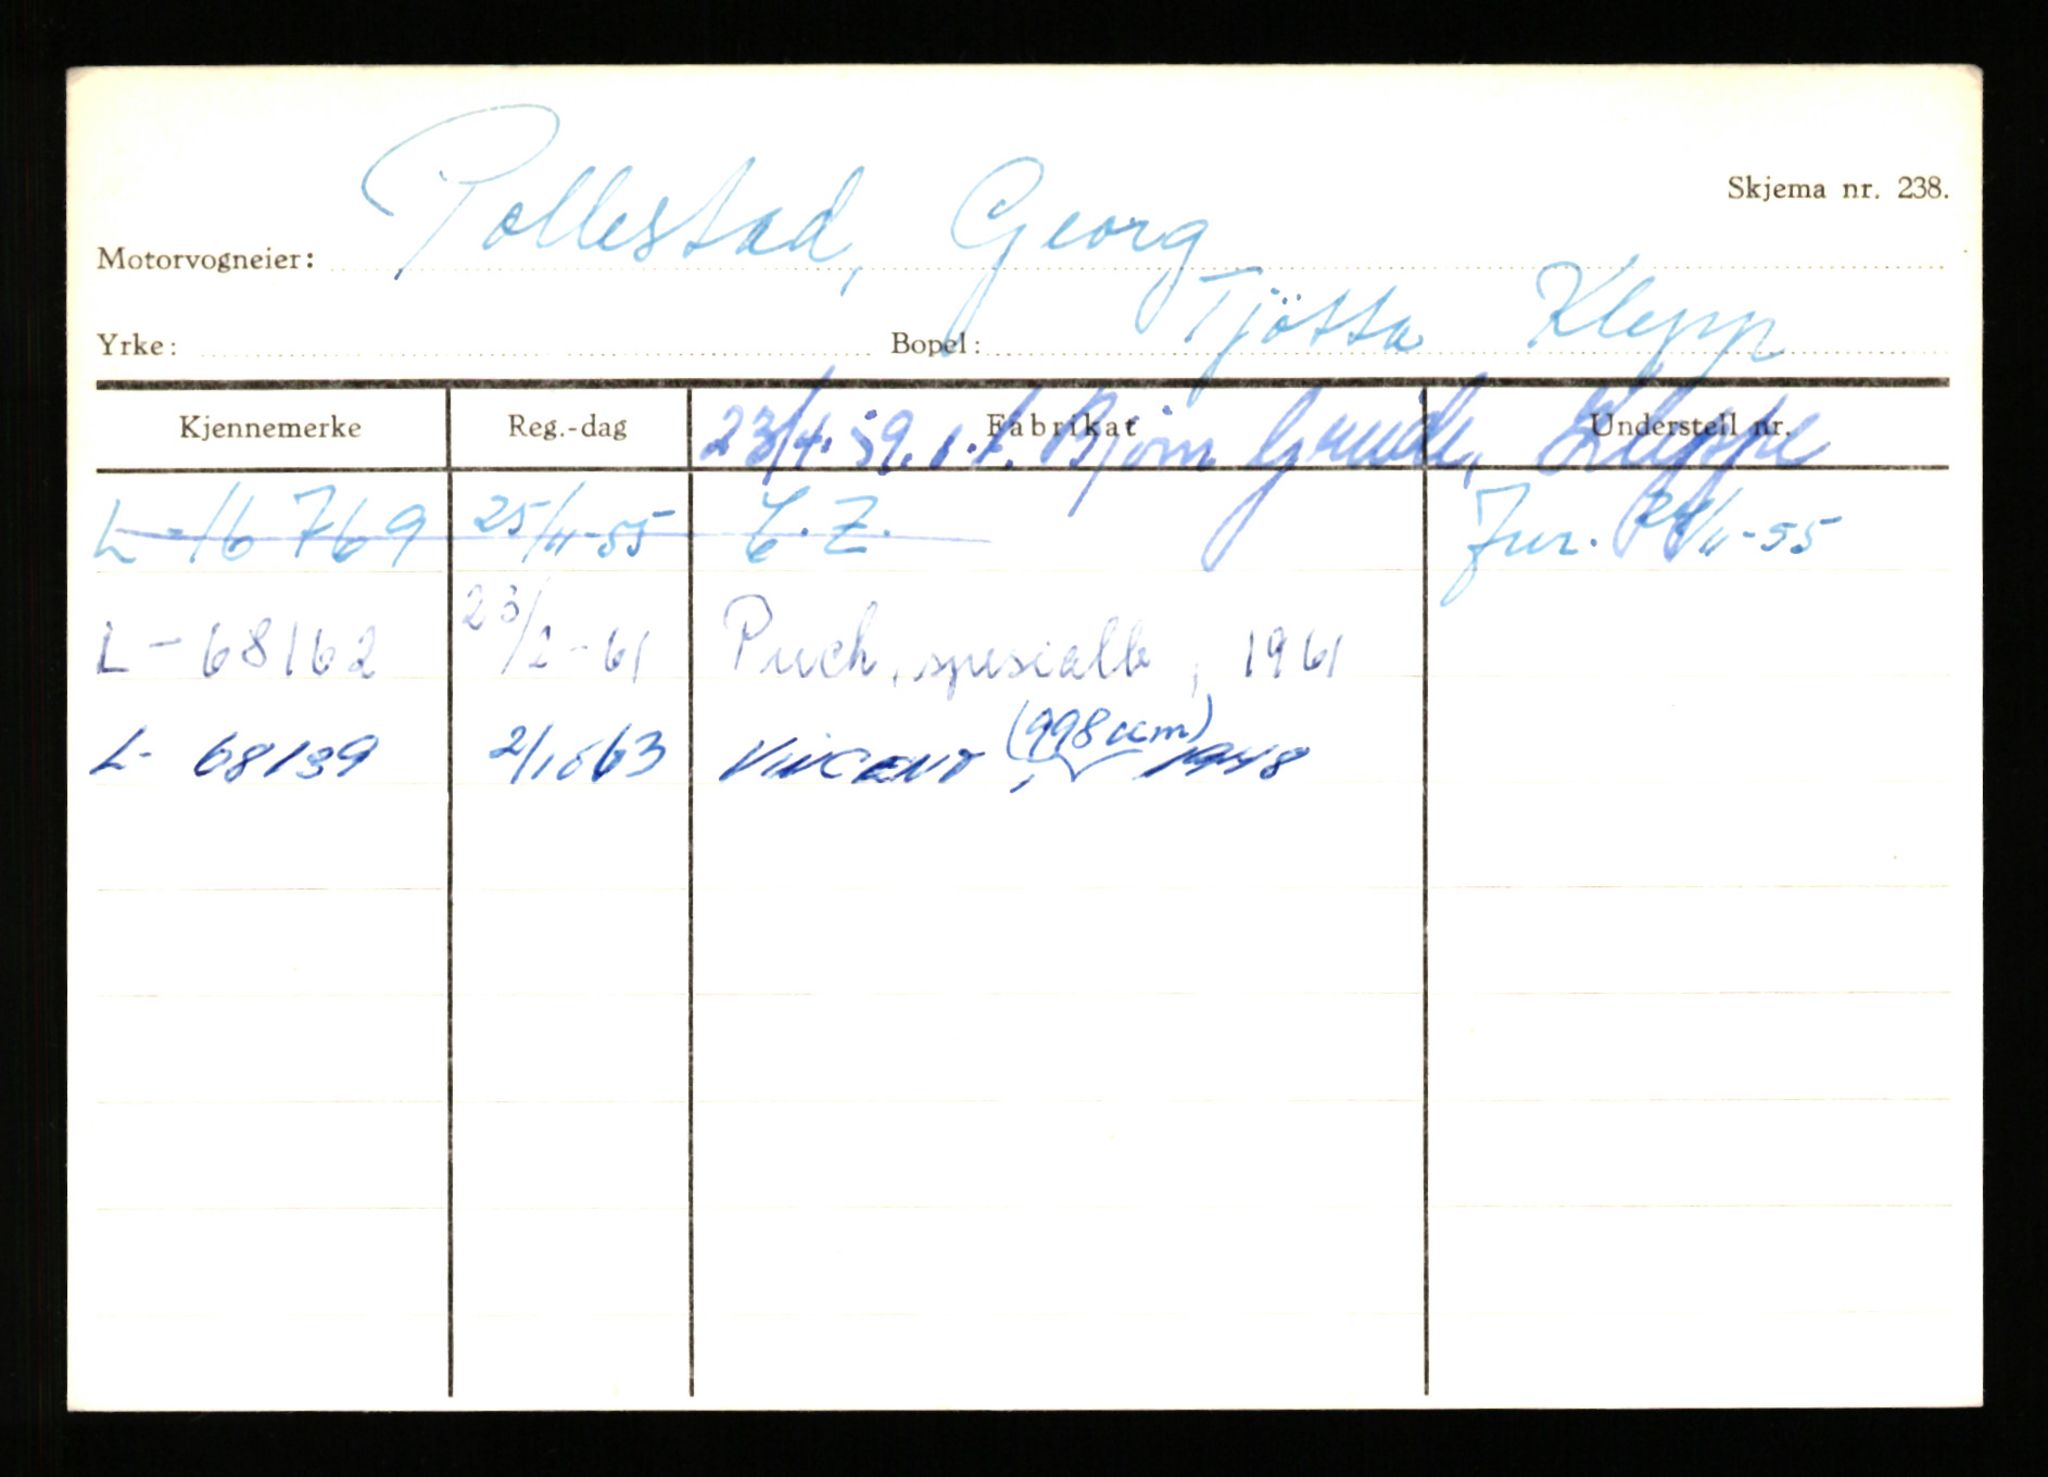 Skjema nr. 238.
Motorvogneier: Pollestad, Georg
Yrke: Bopel: Tjötta Klepp
Kjennemerke Reg.-dag Fabrikat Understell nr.
23/4. 59. Bjørn Grude, Kleppe
L-16769 25/11-55 C.Z. Jnr. 24/11-55
L-68162 23/2-61 Puch, spesialb, 1961
(998 ccm)
L- 68139 2/10 63 VINCENT, 1948